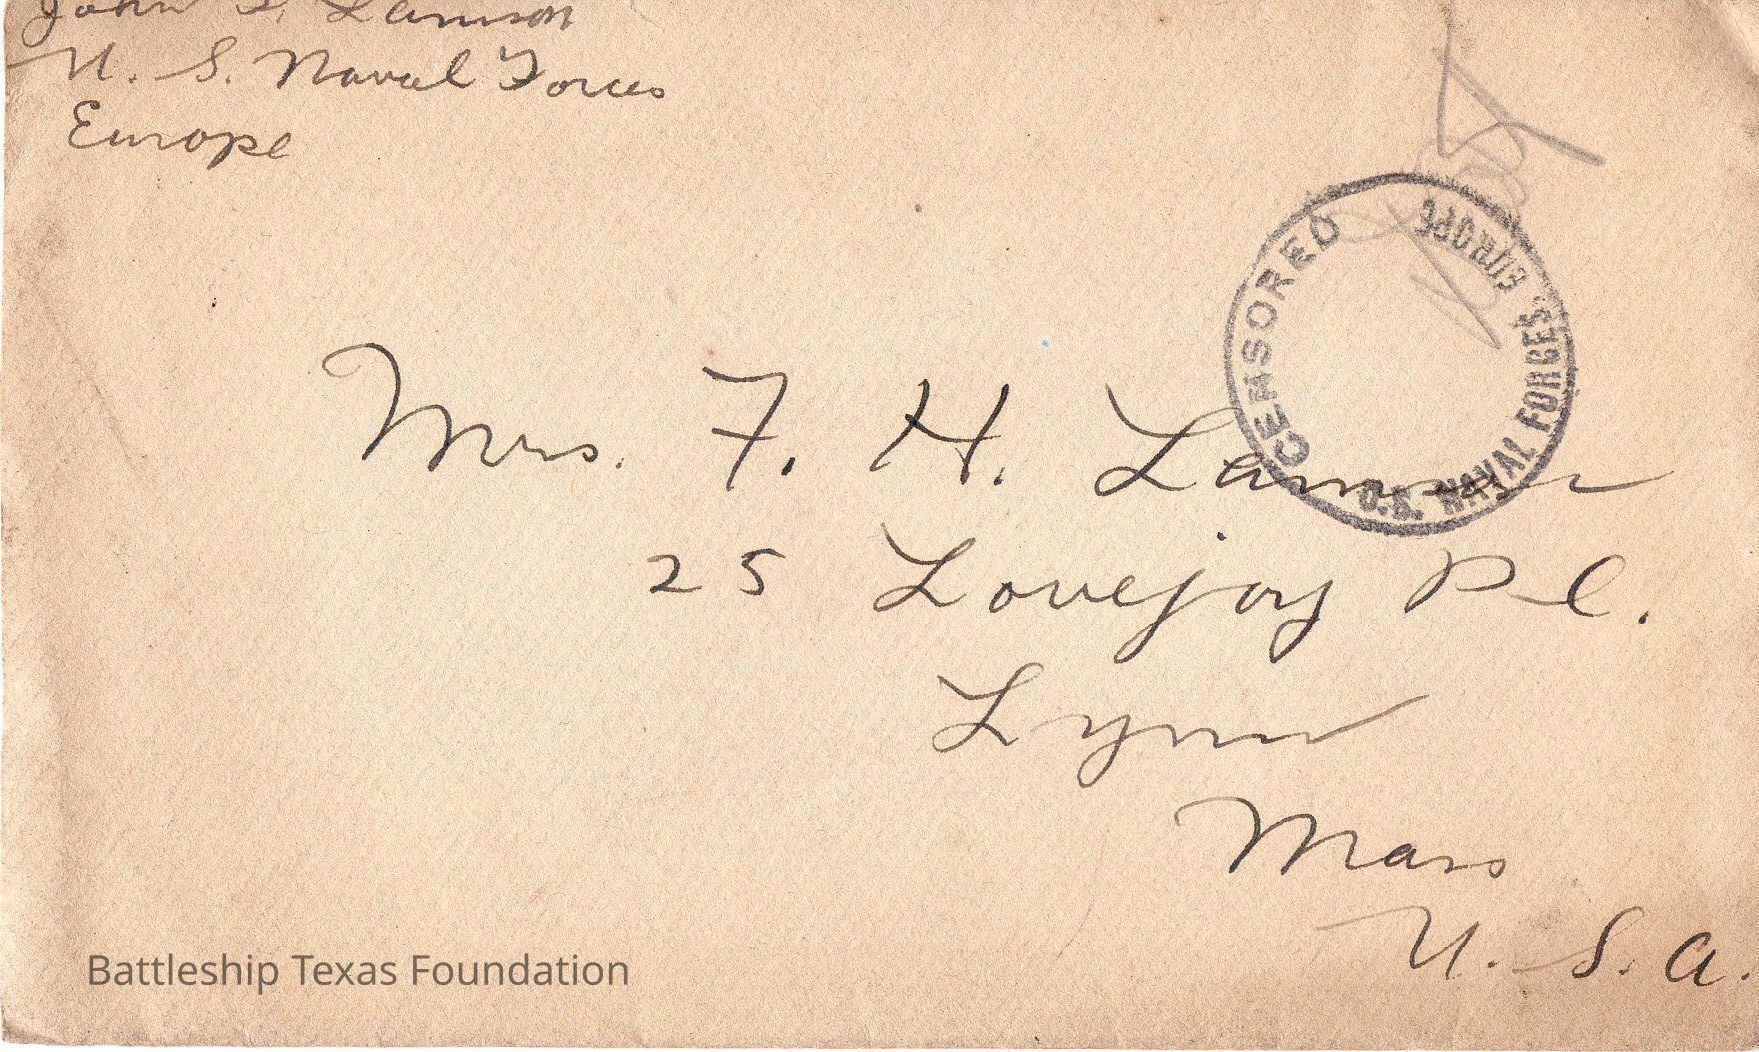 John S. Lamson
U. S. Naval Forces
Europe
CENSORED
U.S. NAVAL FORCES EUROPE
Mrs. F. H. Lamson
25 Lovejoy Pl.
Lynn
Mass
U. S. A.
Battleship Texas Foundation